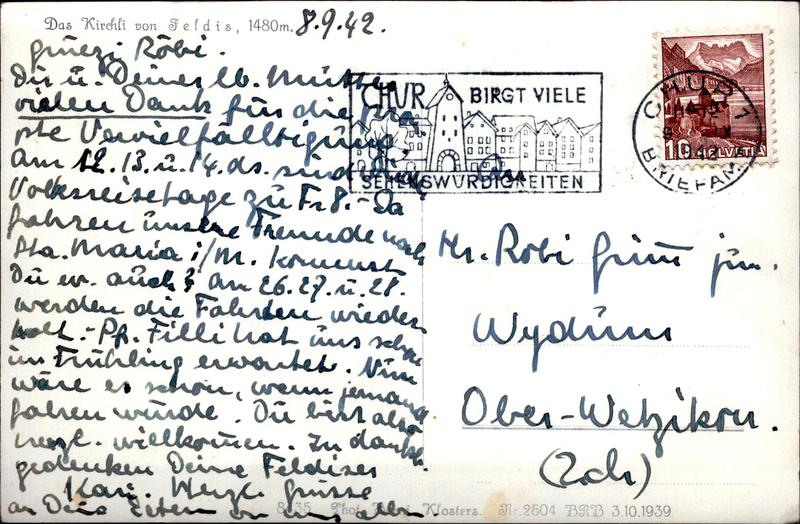 Das Kirchli von Feldis, 1480m.
8.9.42.
grüezi Röbi.
Dir u. Deiner lb. Mutter
vielen Dank für die
Vervielfältigung
am 12. 13. u. 14. ds. sind
Volksreisetage zu Fr 8.- Da
fahren unsere Freunde nach
Sta. Maria i/M. kommst
Du ev. auch? am 26. 27. u. 28.
werden die Fahrten wieder-
holt. - Pfr. Filli hat uns schon
im Frühling erwartet. Nun
wäre es schön, wenn jemand
fahren würde. Du bist also
herzl. willkommen. In dankb.
gedenken Deine Feldiser
Herzl. Grüsse
an Deine Eltern von uns allen.
CHUR BIRGT VIELE
SEHENSWÜRDIGKEITEN
CHUR 1
1942
BRIEFAM
10 HELVETIA
Hr. Robi jun.
Wydum
Ober-Wetzikon.
(Zch)
Klosters. Nr. 2604 BRB 3.10.1939